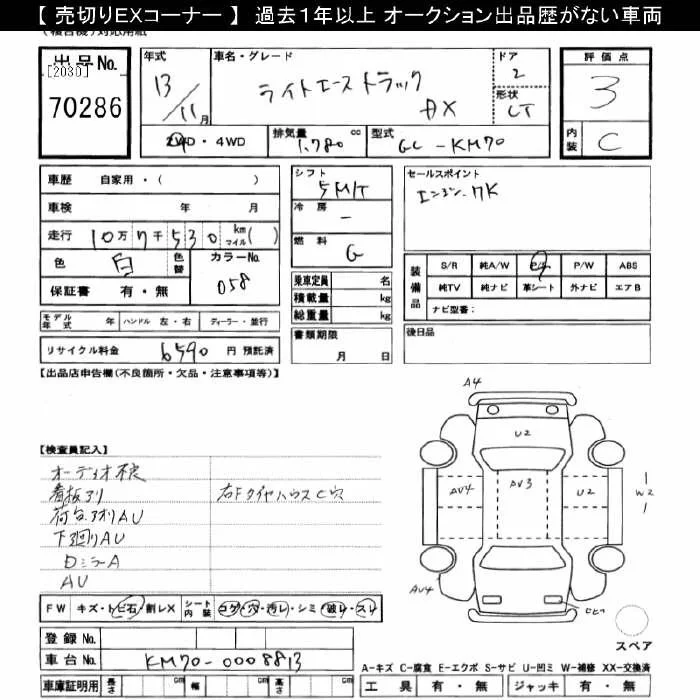 【 売切りEXコーナー 】 過去１年以上 オークション出品歴がない車両
出品No.
[2030]
70286
年式
13/11月
車名・グレード
ライトエーストラック
DX
ドア
2
形状
LT
評価点
3
内装
C
2WD・4WD
排気量
1,780 cc
型式
GC-KM70
車歴 自家用・( )
車検 年 月
走行 10万7千530 km マイル( )
色 白
色替
カラーNo.
058
保証書 有・無
シフト
5M/T
冷房
-
燃料
G
乗車定員 名
積載量 kg
総重量 kg
セールスポイント
エンジン7K
装備品
S/R 純A/W P/S P/W ABS
純TV 純ナビ 革シート 外ナビ エアB
ナビ型番:
モデル年式 年 ハンドル 左・右 ディーラー・並行
書類期限
月 日
後日品
リサイクル料金 6590 円 預託済
【出品店申告欄(不良箇所・欠品・注意事項等)】
【検査員記入】
オーディオ不良
看板アリ
右FタイヤハウスC穴
荷台アオリAU
下廻りAU
DミラーA
AU
A4
U2
AV4
AV3
U2
W2
AV4
スペア
FW キズ・トビ石・割レX
シート内装 コゲ・穴・汚レ・シミ・破レ・スレ
登録No.
車台No. KM70-0008813
車庫証明用 長さ cm 幅 cm 高さ cm
A-キズ C-腐食 E-エクボ S-サビ U-凹ミ W-補修 XX-交換済
工具 有・無 ジャッキ 有・無